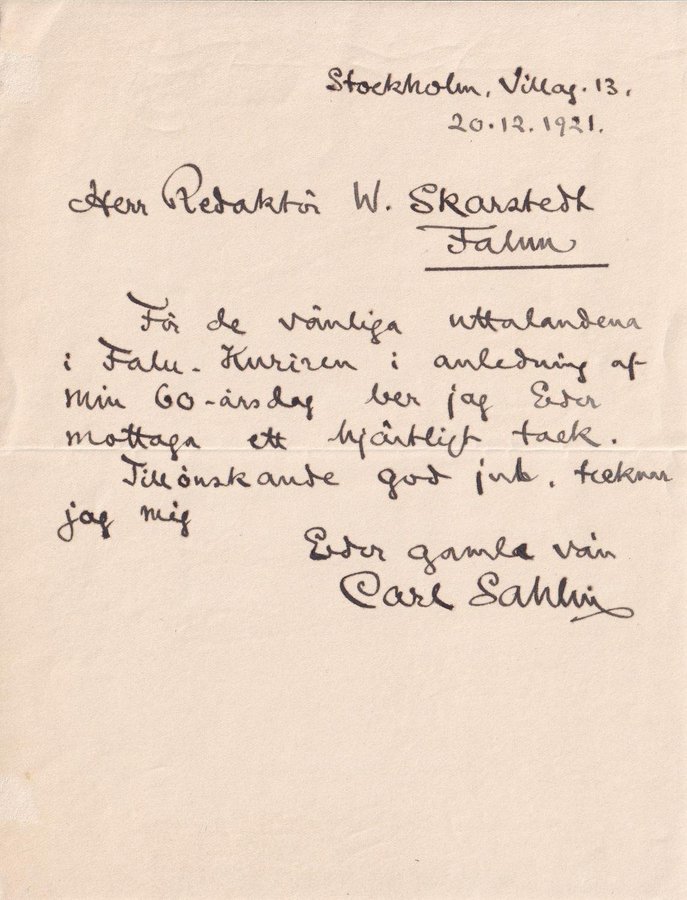 Stockholm, Villag. 13.
20.12.1921.
Herr Redaktör W. Skarstedt
Falun
För de vänliga uttalandena
i Falu-Kuriren i anledning af
min 60-årsdag ber jag Eder
mottaga ett hjärtligt tack.
Tillönskande god jul, tecknar
jag mig
Eder gamle vän
Carl Sahlin